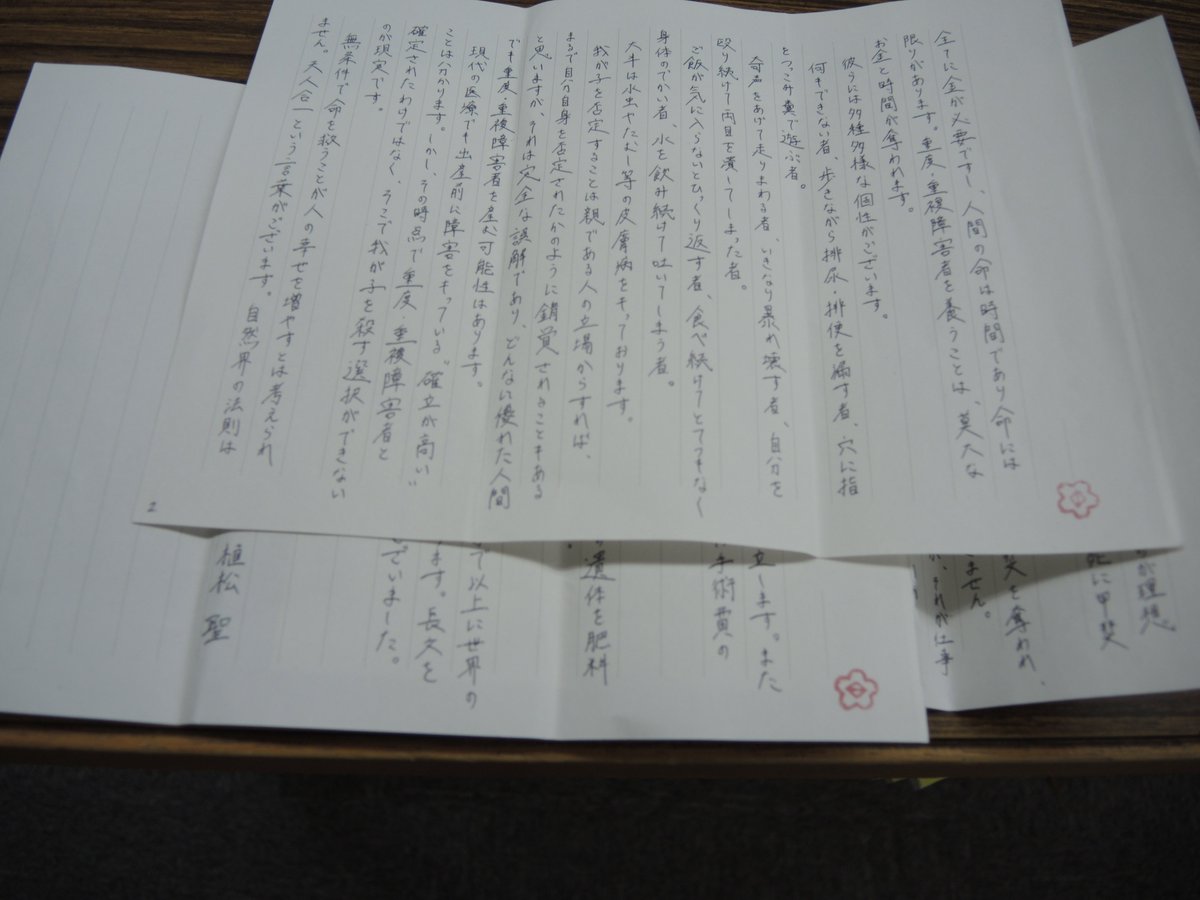 全てに金が必要ですし、人間の命は時間であり命には
限りがあります。重度・重複障害者を養うことは、莫大な
お金と時間が奪われます。
彼らには多種多様な個性がございます。
何もできない者、歩きながら排尿・排便を漏す者、穴に指
をつっこみ糞で遊ぶ者。
奇声をあげて走りまわる者、いきなり暴れ壊す者、自分を
殴り続けて両目を潰してしまった者。
ご飯が気に入らないとひっくり返す者、食べ続けてとてつもなく
身体のでかい者、水を飲み続けて吐いてしまう者。
大半は水虫やたむし等の皮膚病をもっております。
我が子を否定することは親である人の立場からすれば、
まるで自分自身を否定されたかのように錯覚されることもある
と思いますが、それは完全な誤解であり、どんなに優れた人間
でも重度・重複障害者を産む可能性はあります。
現代の医療でも出産前に障害をもっている〝確立が高い〟
ことは分かります。しかし、その時点で重度・重複障害者と
確定されたわけではなく、そこで我が子を殺す選択ができない
のが現実です。
無条件で命を救うことが人の幸せを増やすとは考えられ
ません。天人合一という言葉がございます。自然界の法則は
2
が理想。
死に甲斐
を奪われ、
ません。
、それが仕事
立します。また
手術費の
遺体を肥料
。
て以上に世界の
ます。長文を
ございました。
植松 聖